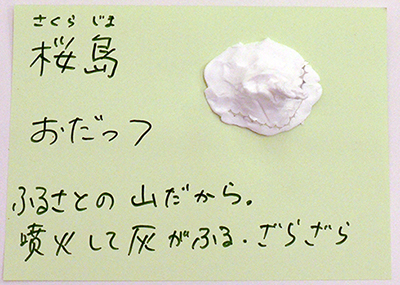 さくらじま
桜島
おだっつ
ふるさとの山だから。
噴火して灰がふる・ざらざら